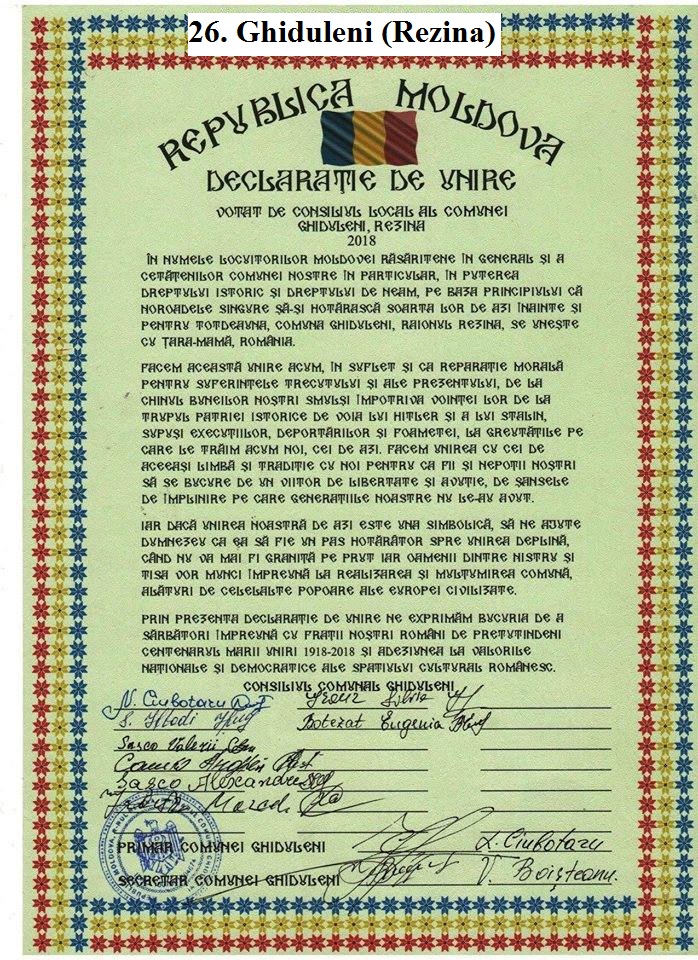 26. Ghiduleni (Rezina)
REPUBLICA MOLDOVA
DECLARAȚIE DE UNIRE
VOTAT DE CONSILIUL LOCAL AL COMUNEI
GHIDULENI, REZINA
2018
ÎN NUMELE LOCUITORILOR MOLDOVEI RĂSĂRITENE ÎN GENERAL ȘI A
CETĂȚENILOR COMUNEI NOSTRE ÎN PARTICULAR, ÎN PUTEREA
DREPTULUI ISTORIC ȘI DREPTULUI DE NEAM, PE BAZA PRINCIPIULUI CĂ
NOROADELE SINGURE SĂ-ȘI HOTĂRASCĂ SOARTA LOR DE AZI ÎNAINTE ȘI
PENTRU TOTDEAUNA, COMUNA GHIDULENI, RAIONUL REZINA, SE UNEȘTE
CU ȚARA-MAMĂ, ROMÂNIA.
FACEM ACEASTĂ UNIRE ACUM, ÎN SUFLET ȘI CA REPARAȚIE MORALĂ
PENTRU SUFERINȚELE TRECUTULUI ȘI ALE PREZENTULUI, DE LA
CHINUL BUNEILOR NOȘTRI SMULȘI ÎMPOTRIVA VOINȚEI LOR DE LA
TRUPUL PATRIEI ISTORICE DE VOIA LUI HITLER ȘI A LUI STALIN,
SUPUȘI EXECUȚIILOR, DEPORTĂRILOR ȘI FOAMETEI, LA GREUTĂȚILE PE
CARE LE TRĂIM ACUM NOI, CEI DE AZI. FACEM UNIREA CU CEI DE
ACEEAȘI LIMBĂ ȘI TRADIȚIE CU NOI PENTRU CA FII ȘI NEPOȚII NOȘTRI
SĂ SE BUCURE DE UN VIITOR DE LIBERTATE ȘI AVUȚIE, DE ȘANSELE
DE ÎMPLINIRE PE CARE GENERAȚIILE NOASTRE NU LE-AU AVUT.
IAR DACĂ UNIREA NOASTRĂ DE AZI ESTE UNA SIMBOLICĂ, SĂ NE AJUTE
DUMNEZEU CA EA SĂ FIE UN PAS HOTĂRÂTOR SPRE UNIREA DEPLINĂ,
CÂND NU VA MAI FI GRANIȚĂ PE PRUT IAR OAMENII DINTRE NISTRU ȘI
TISA VOR MUNCI ÎMPREUNĂ LA REALIZAREA ȘI MULȚUMIREA COMUNĂ,
ALĂTURI DE CELELALTE POPOARE ALE EUROPEI CIVILIZATE.
PRIN PREZENTA DECLARAȚIE DE UNIRE NE EXPRIMĂM BUCURIA DE A
SĂRBĂTORI ÎMPREUNĂ CU FRAȚII NOȘTRI ROMÂNI DE PRETUTINDENI
CENTENARUL MARII UNIRI 1918-2018 ȘI ADEZIUNEA LA VALORILE
NAȚIONALE ȘI DEMOCRATICE ALE SPAȚIULUI CULTURAL ROMÂNESC.
CONSILIUL COMUNAL GHIDULENI
N. Ciubotaru
Silvia
S.
Botezat Eugenia
Sasco Valerii
Sasco Alexandru
PRIMAR COMUNEI GHIDULENI
Ciubotaru
SECRETAR COMUNEI GHIDULENI
V. Boișteanu.